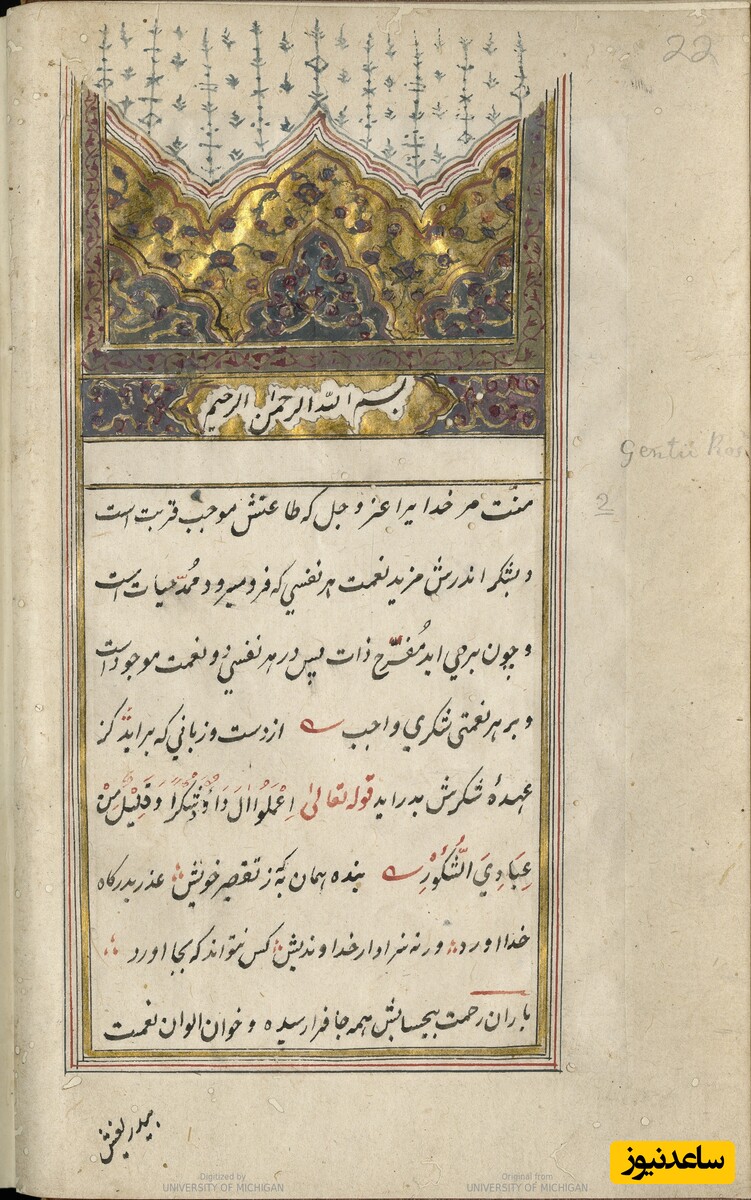 22
بسم الله الرحمن الرحیم
منت مر خدایرا عز و جل که طاعتش موجب قربت است
و بشکر اندرش مزید نعمت هر نفسی که فرو میرود ممد حیات است
و چون برمی اید مُفرّح ذات پس در هر نفسی دو نعمت موجود است
و بر هر نعمتی شکری واجب از دست و زبانی که براید کز
عهدهٔ شکرش بدر اید قوله تعالی اِعْمَلُوا الَ دَاوُدَ شُکرًا وَ قَلِیْلٌ مِنْ
عِبَادِيَ الشَّکُوْرِ بنده همان به که ز تقصیر خویش عذر بدرکاه
خدا اورد ورنه سزاوار خداوندیش کس نتواند که بجا اورد
باران رحمت بیحسابش همه جا فرا رسیده و خوان الوان نعمت
بیدریغش
Gentii
2
ساعدنیوز
Digitized by
UNIVERSITY OF MICHIGAN
Original from
UNIVERSITY OF MICHIGAN